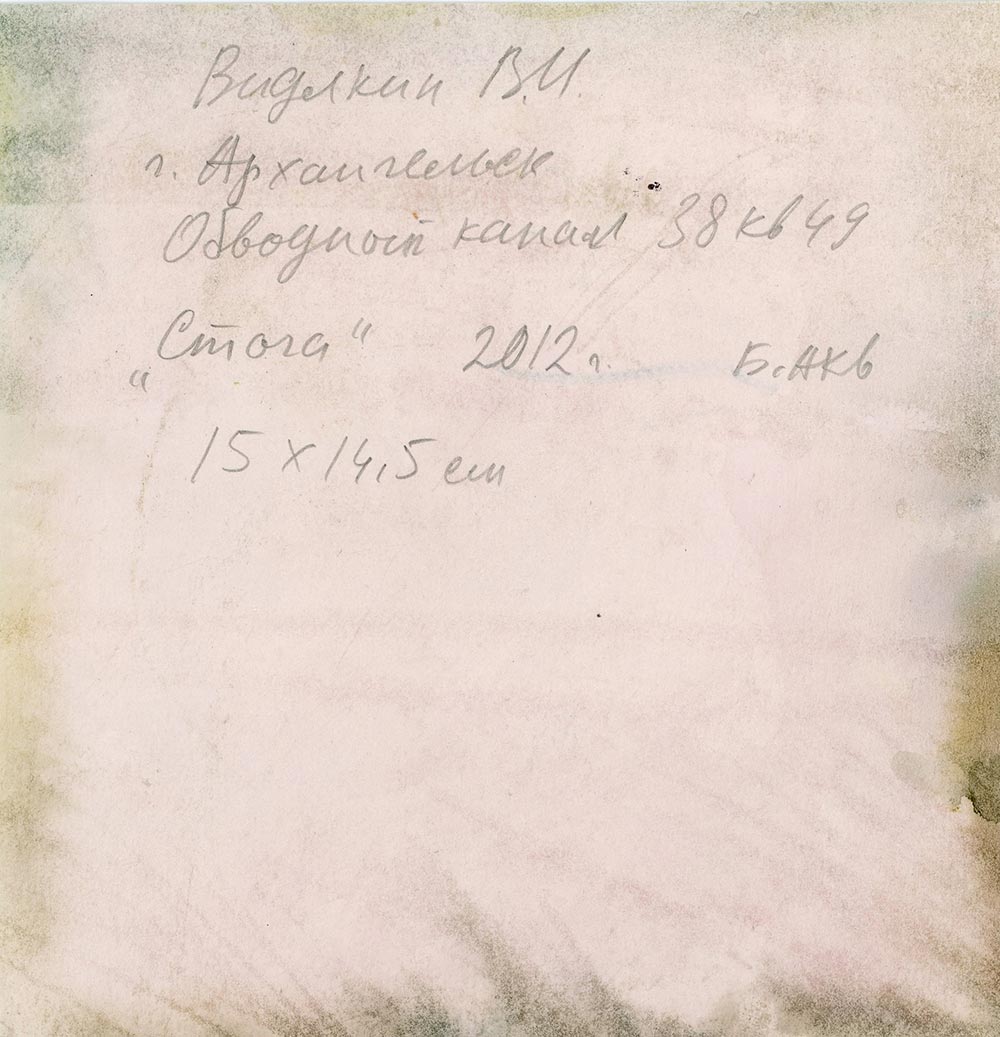 Видякин В.И.
г. Архангельск
Обводный канал 38 кв 49
„Стога“ 2012 г. Б. Акв
15 x 14,5 см